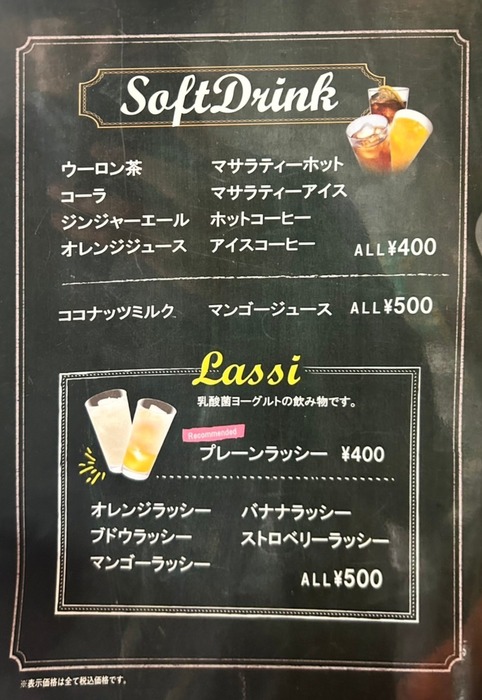 SoftDrink
ウーロン茶 マサラティーホット
コーラ マサラティーアイス
ジンジャーエール ホットコーヒー
オレンジジュース アイスコーヒー ALL¥400
ココナッツミルク マンゴージュース ALL¥500
Lassi
乳酸菌ヨーグルトの飲み物です。
Recommended
プレーンラッシー ¥400
オレンジラッシー バナナラッシー
ブドウラッシー ストロベリーラッシー
マンゴーラッシー
ALL¥500
※表示価格は全て税込価格です。